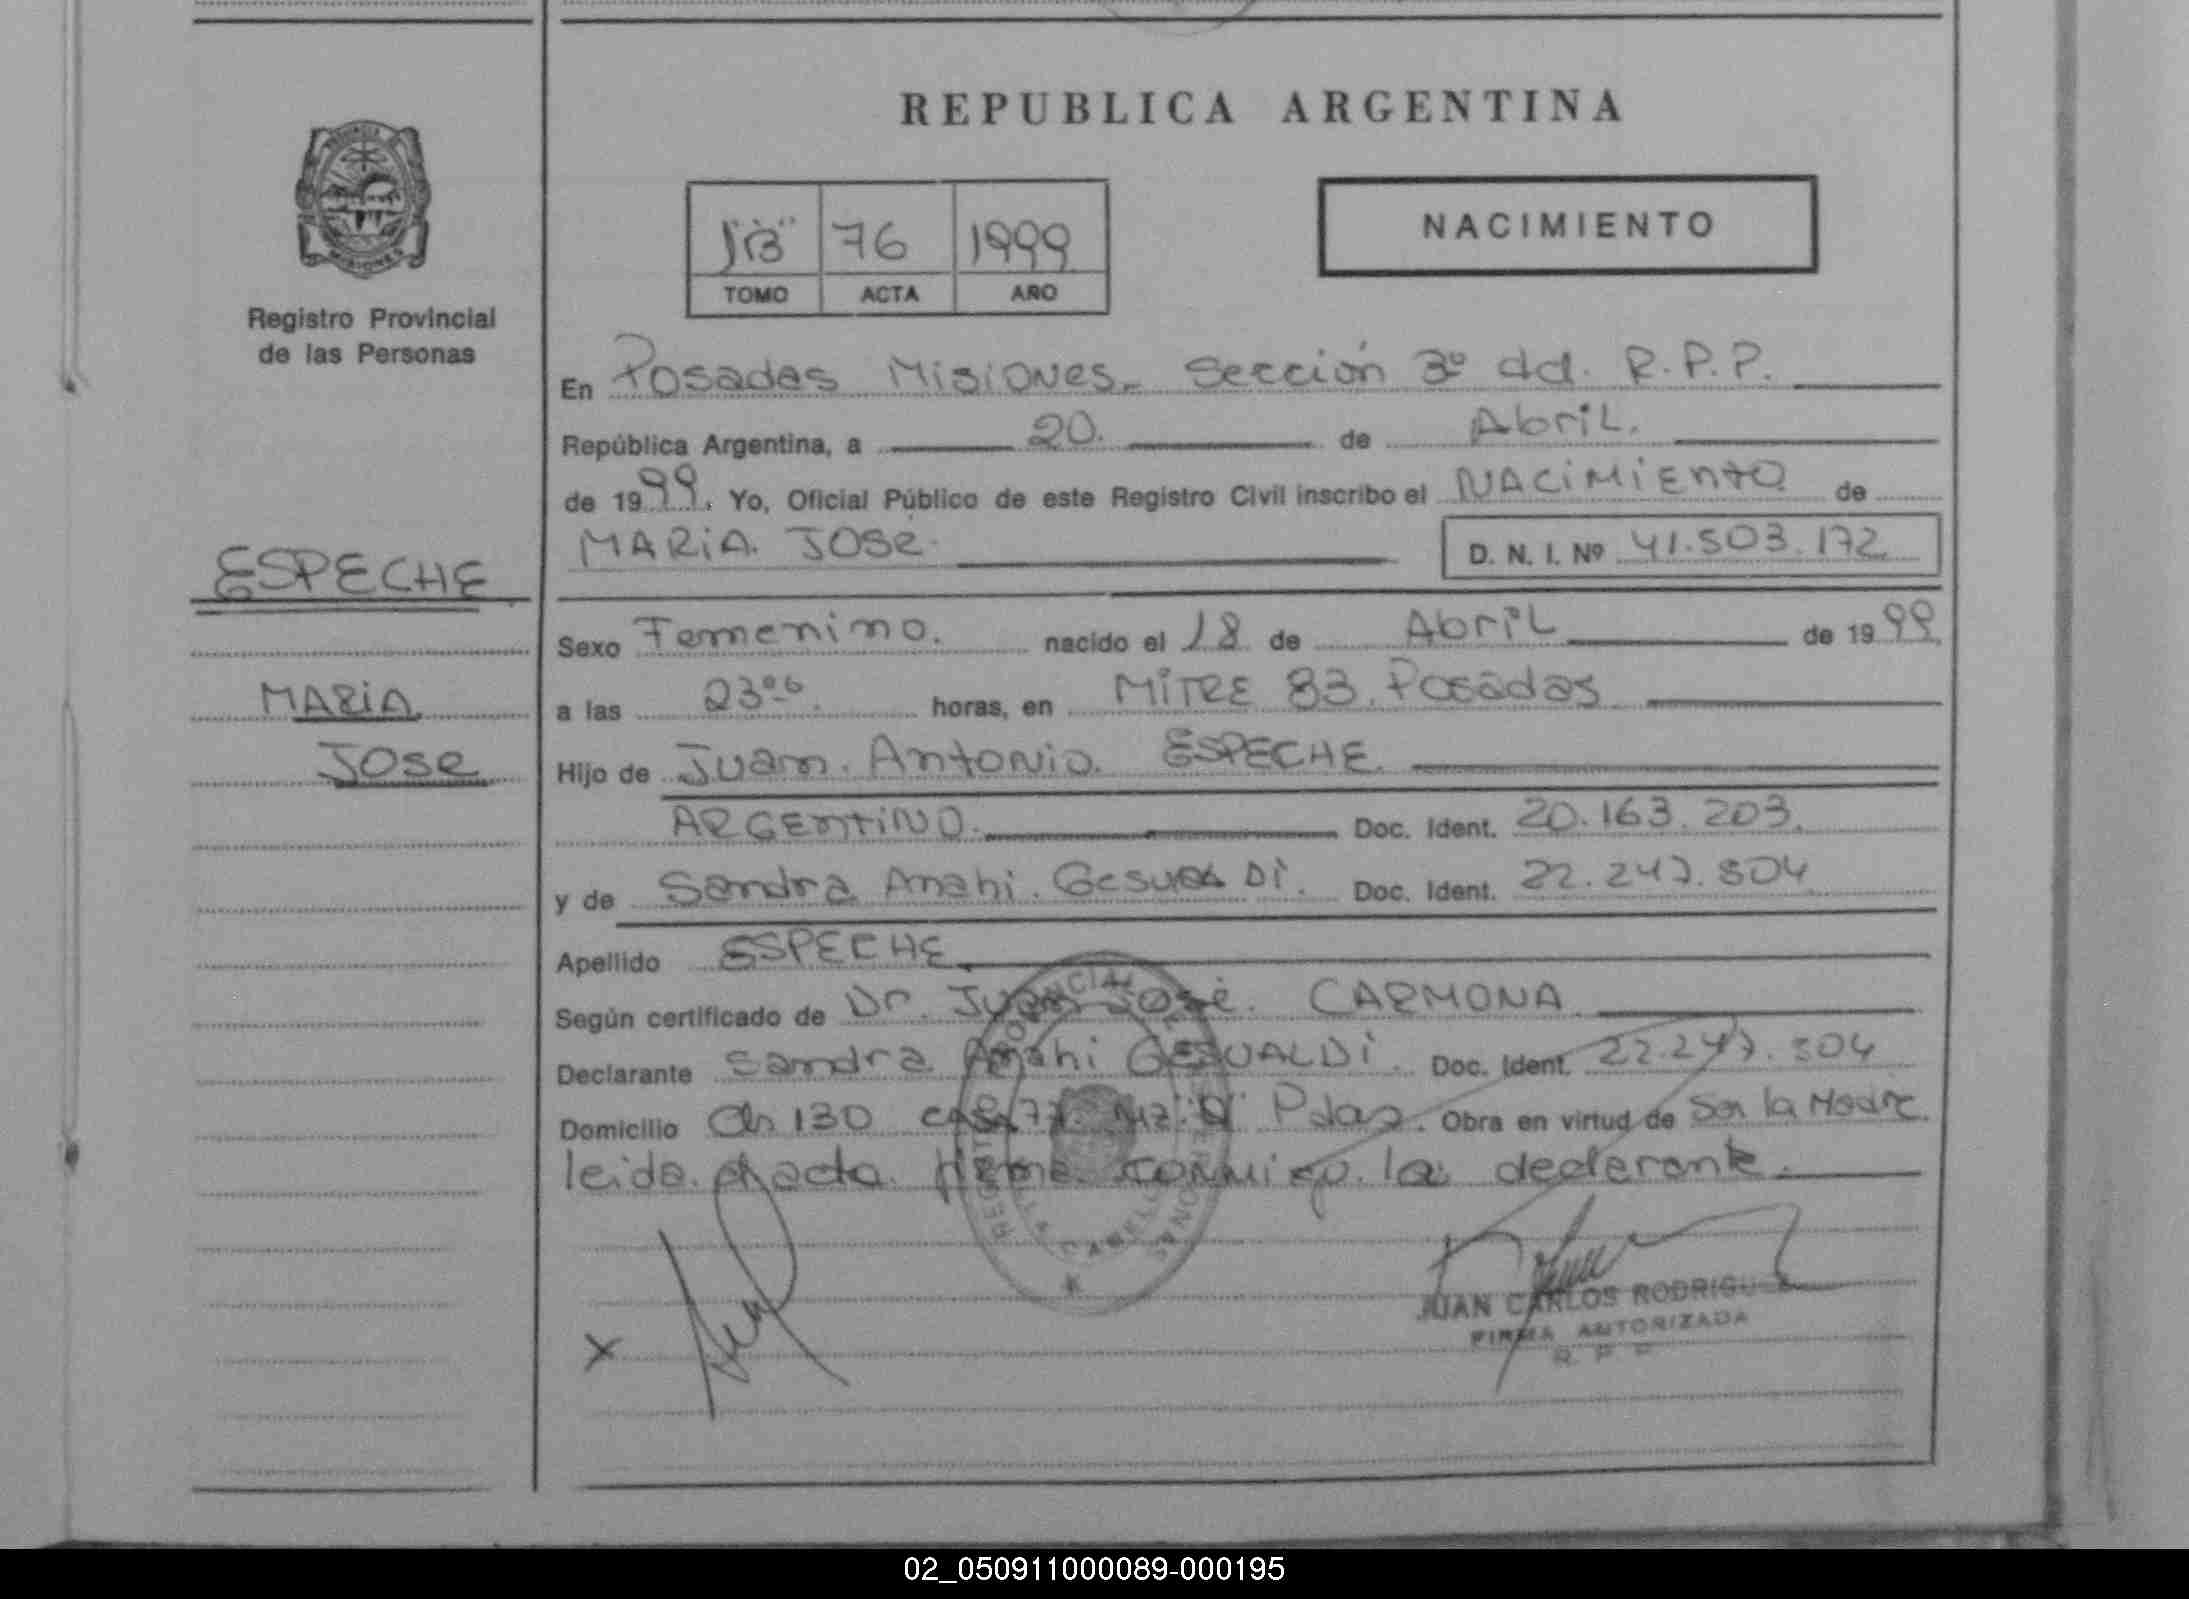 REPUBLICA ARGENTINA
76 1999
TOMO ACTA AÑO
NACIMIENTO
PROVINCIA
MISIONES
Registro Provincial
de las Personas
ESPECHE
MARIA
JOSE
En Posadas Misiones. Sección 3º del. R.P.P.
República Argentina, a 20. de Abril.
de 1999. Yo, Oficial Público de este Registro Civil inscribo el NACIMIENTO de
MARIA. JOSE. D. N. I. Nº 41.503.172
Sexo Femenino. nacido el 18 de Abril de 1999
a las 23º⁶. horas, en MITRE 83. Posadas
Hijo de Juan. Antonio. ESPECHE.
ARGENTINO. Doc. Ident. 20.163.203.
y de Sandra Anahi. Gesualdi. Doc. Ident. 22.247.504
Apellido ESPECHE.
Según certificado de Dr. Juan José. CARMONA
Declarante Sandra Anahi GESUALDI. Doc. Ident. 22.247.504
Domicilio Ch 130 casa 77. Mz: Pdas. Obra en virtud de Ser la Madre.
leida. el acta. firma conmigo. la declarante.
JUAN CARLOS RODRIGUEZ
FIRMA AUTORIZADA
R. P. P.
02_050911000089-000195